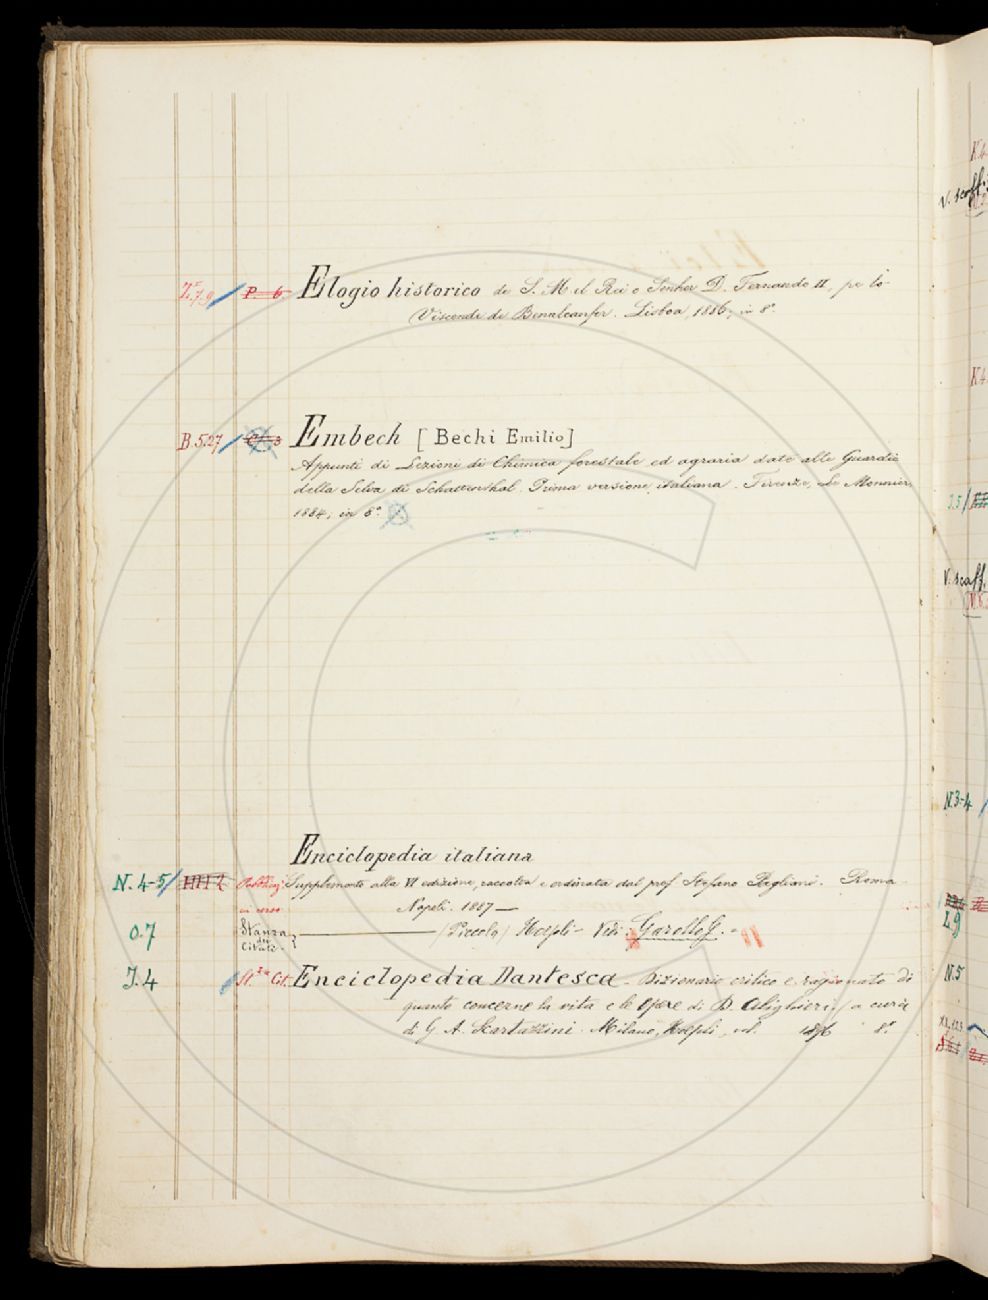 Z.7.9 P 6 Elogio historico de S. M. el Rei o Senhor D. Fernando II, pelo
Visconde de Benalcanfor. Lisboa, 1886, in 8°.
B.5.27 Embech [Bechi Emilio]
Appunti di Lezioni di Chimica forestale ed agraria date alle Guardie
della Selva di Schattenthal. Prima versione italiana. Firenze, Le Monnier,
1884, in 8°.
Enciclopedia italiana
N. 4-5 Pubblicaz Supplemento alla VI edizione, raccolta e ordinata dal prof Stefano Pagliani. Roma
in corso Napoli. 1887 —
O.7 Stanza dei Citati } — (Piccola) Hoepli — Vedi: Garollo G. —
J.4 St.za Cit. Enciclopedia Dantesca — Dizionario critico e ragionato di
quanto concerne la vita e le Opere di D. Alighieri, a cura
di G. A. Scartazzini. Milano, Hoepli, vol. 1896 8.°
V. scaff.
K4
J.5
V. scaff.
N.3-4
L.9
N.5